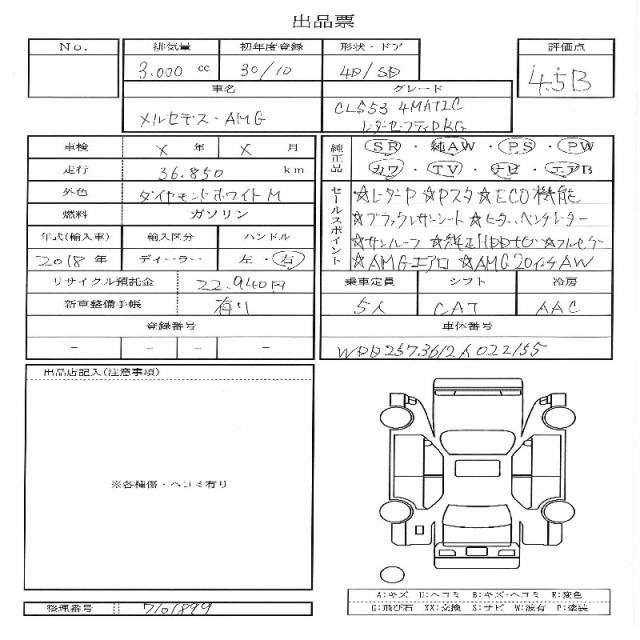 出品票
No. 排気量 初年度登録 形状・ドア 評価点
3.000 cc 30/10 4D/SD 4.5B
車名 グレード
メルセデス・AMG CLS53 4MATIC
レダーセーフティPKG
車検 X 年 X 月 純正品 SR・純AW・PS・PW
走行 36.850 km カワ・TV・ナビ・エアB
外色 ダイヤモンドホワイトM セールスポイント ☆レーダーP ☆Pスタ☆ECO機能
燃料 ガソリン ☆ブラックレザーシート☆ヒーター、ベンチレーター
年式(輸入車) 輸入区分 ハンドル ☆サンルーフ ☆純正HDD地デジ☆フルセグ
2018 年 ディーラー 左・右 ☆AMGエアロ ☆AMG20インチAW
リサイクル預託金 22.940円 乗車定員 シフト 冷房
新車整備手帳 有り 5人 CAT AAC
登録番号 車体番号
– – – – WDD2573612A022155
出品店記入(注意事項)
※各種傷・ヘコミ有り
A:キズ U:ヘコミ B:キズ・ヘコミ E:変色
G:飛び石 XX:交換 S:サビ W:波有 P:塗装
整理番号 7101899